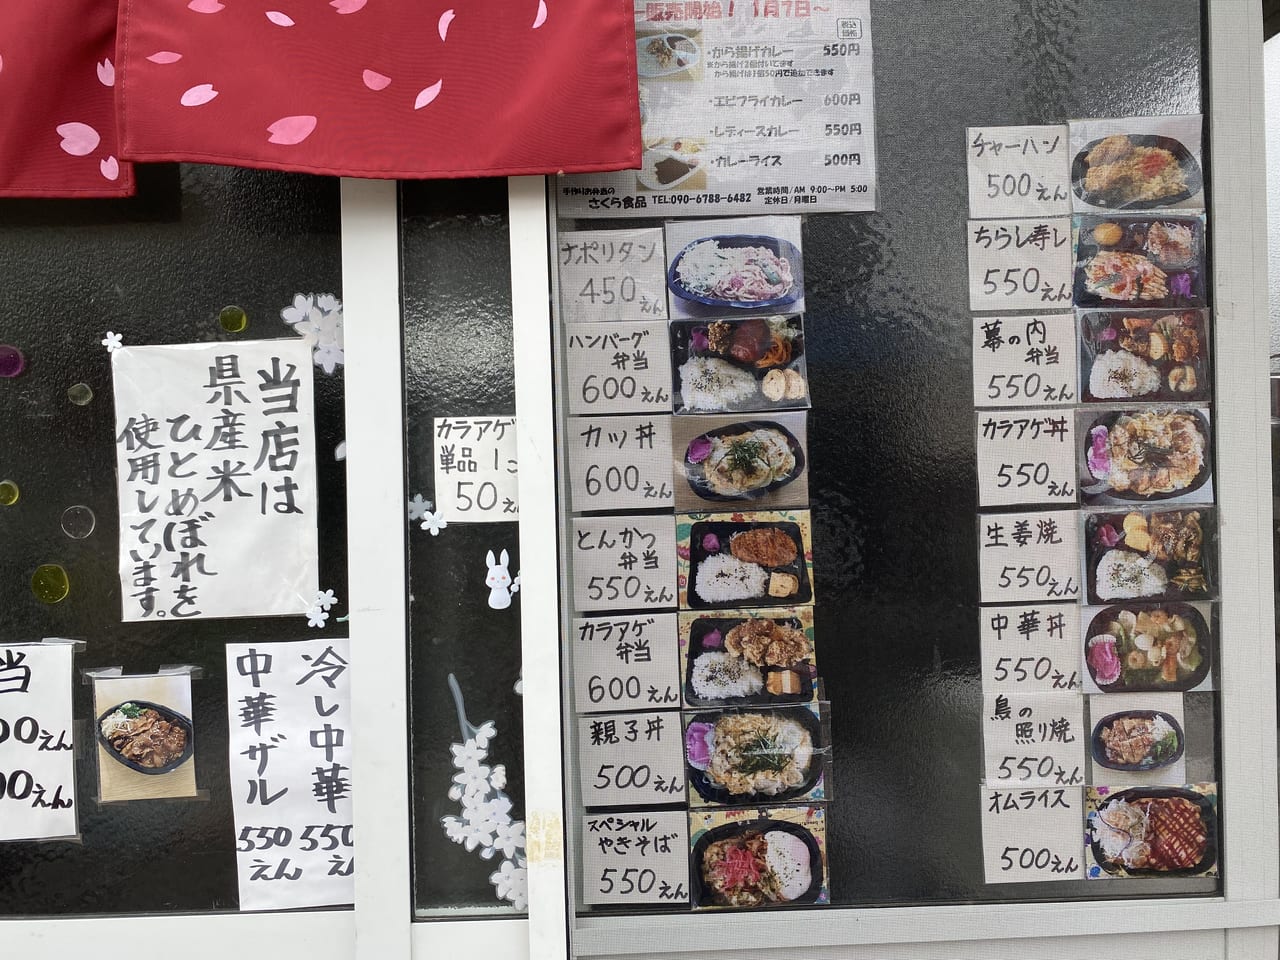 販売開始！ 1月7日〜
税込価格
・から揚げカレー 550円
※から揚げ2個付いてます
から揚げは1個50円で追加できます
・エビフライカレー 600円
・レディースカレー 550円
・カレーライス 500円
手作りお弁当の
さくら食品 TEL:090-6788-6482
営業時間/AM 9:00〜PM 5:00
定休日/月曜日
ナポリタン
450えん
ハンバーグ
弁当
600えん
カツ丼
600えん
とんかつ
弁当
550えん
カラアゲ
弁当
600えん
親子丼
500えん
スペシャル
やきそば
550えん
チャーハン
500えん
ちらし寿し
550えん
幕の内
弁当
550えん
カラアゲ丼
550えん
生姜焼
550えん
中華丼
550えん
鳥の
照り焼
550えん
オムライス
500えん
カラアゲ
単品 1こ
50え
当店は
県産米
ひとめぼれを
使用しています。
冷し中華
550え
中華ザル
550えん
当
00えん
00えん